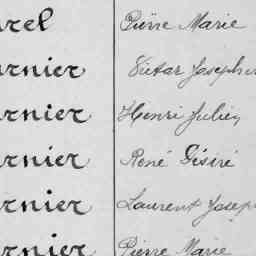 urel Pierre Marie
rnier Victor Joseph
rnier Henri Julien
rnier René Désiré
rnier Laurent Josep
rnier Pierre Marie